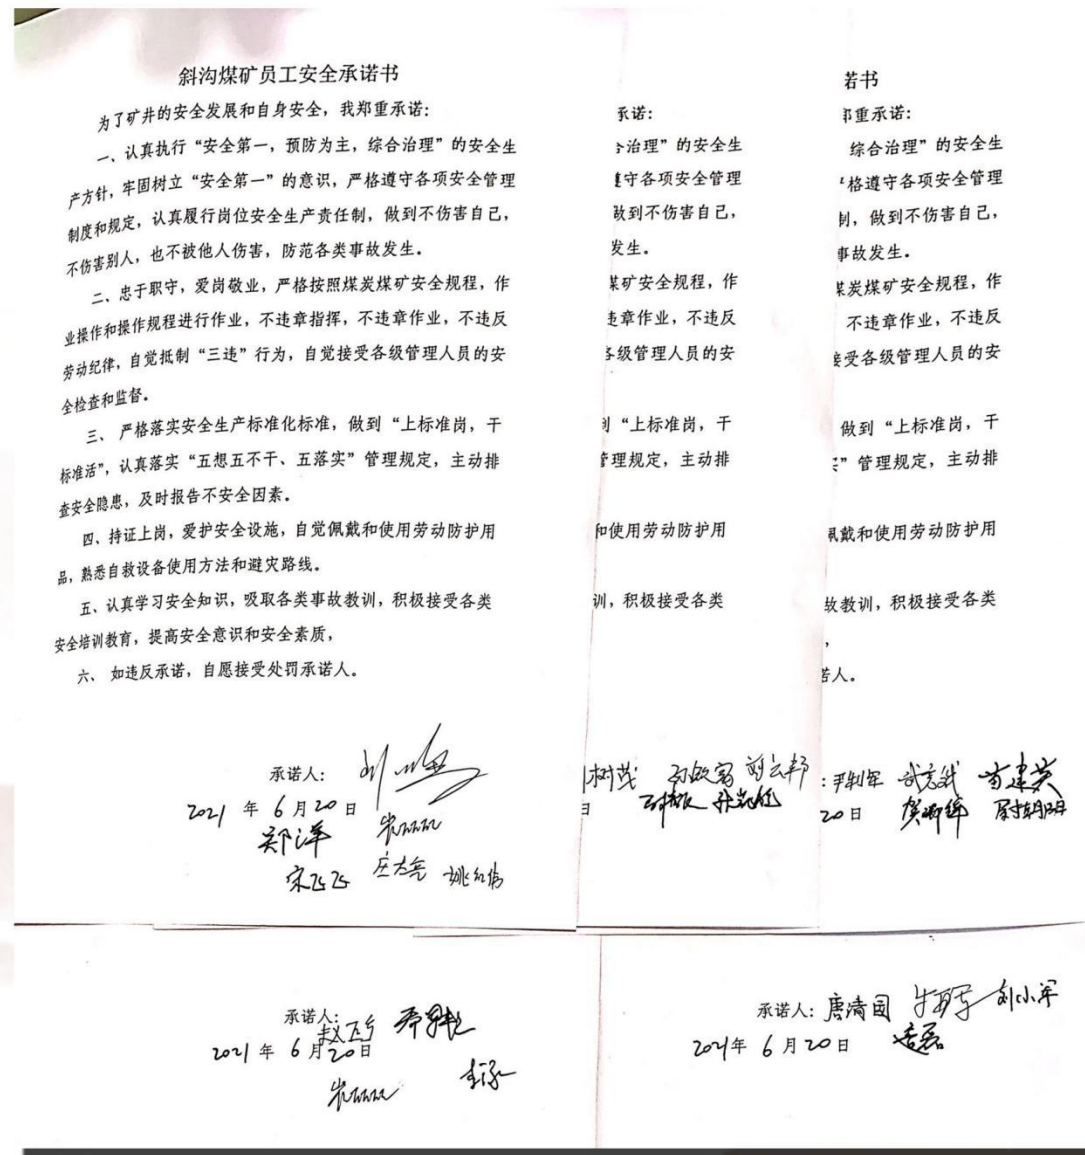 斜沟煤矿员工安全承诺书
为了矿井的安全发展和自身安全，我郑重承诺：
一、认真执行“安全第一，预防为主，综合治理”的安全生
产方针，牢固树立“安全第一”的意识，严格遵守各项安全管理
制度和规定，认真履行岗位安全生产责任制，做到不伤害自己，
不伤害别人，也不被他人伤害，防范各类事故发生。
二、忠于职守，爱岗敬业，严格按照煤炭煤矿安全规程，作
业操作和操作规程进行作业，不违章指挥，不违章作业，不违反
劳动纪律，自觉抵制“三违”行为，自觉接受各级管理人员的安
全检查和监督。
三、 严格落实安全生产标准化标准，做到“上标准岗，干
标准活”，认真落实“五想五不干、五落实”管理规定，主动排
查安全隐患，及时报告不安全因素。
四、持证上岗，爱护安全设施，自觉佩戴和使用劳动防护用
品，熟悉自救设备使用方法和避灾路线。
五、认真学习安全知识，吸取各类事故教训，积极接受各类
安全培训教育，提高安全意识和安全素质，
六、 如违反承诺，自愿接受处罚承诺人。
承诺人：
2021 年 6 月 20 日
郑洋
宋飞飞 庄大亮 姚红伟
承诺：
治理”的安全生
守各项安全管理
做到不伤害自己，
发生。
煤矿安全规程，作
违章作业，不违反
各级管理人员的安
“上标准岗，干
管理规定，主动排
和使用劳动防护用
训，积极接受各类
树茂 刘云邦
日
若书
郑重承诺：
综合治理”的安全生
格遵守各项安全管理
制，做到不伤害自己，
事故发生。
煤炭煤矿安全规程，作
不违章作业，不违反
接受各级管理人员的安
做到“上标准岗，干
”管理规定，主动排
佩戴和使用劳动防护用
故教训，积极接受各类
，
诺人。
： 苗建英
20 日 尉朝明
承诺人：
赵飞
2021 年 6 月 20 日
承诺人：唐清园 刘小军
2021 年 6 月 20 日